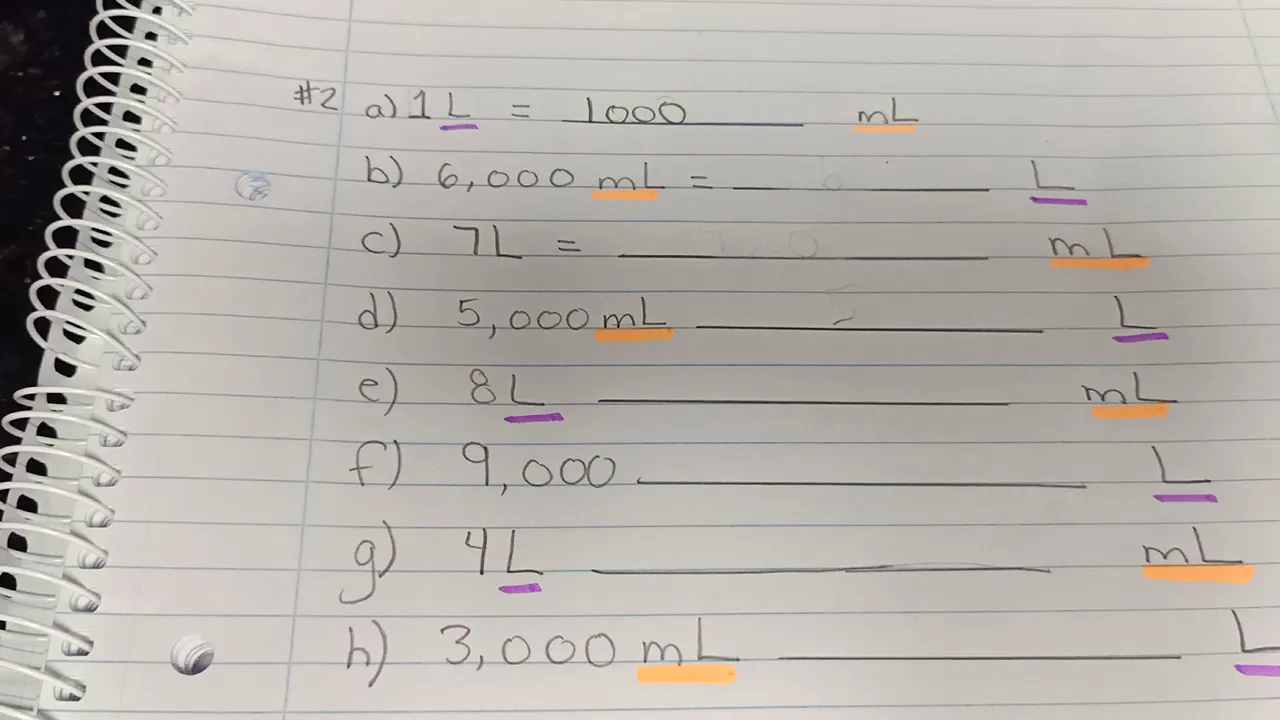 #2 a) 1 L = 1000 mL
b) 6,000 mL = ______ L
c) 7L = ______ mL
d) 5,000 mL ______ L
e) 8 L ______ mL
f) 9,000 ______ L
g) 4 L ______ mL
h) 3,000 mL ______ L